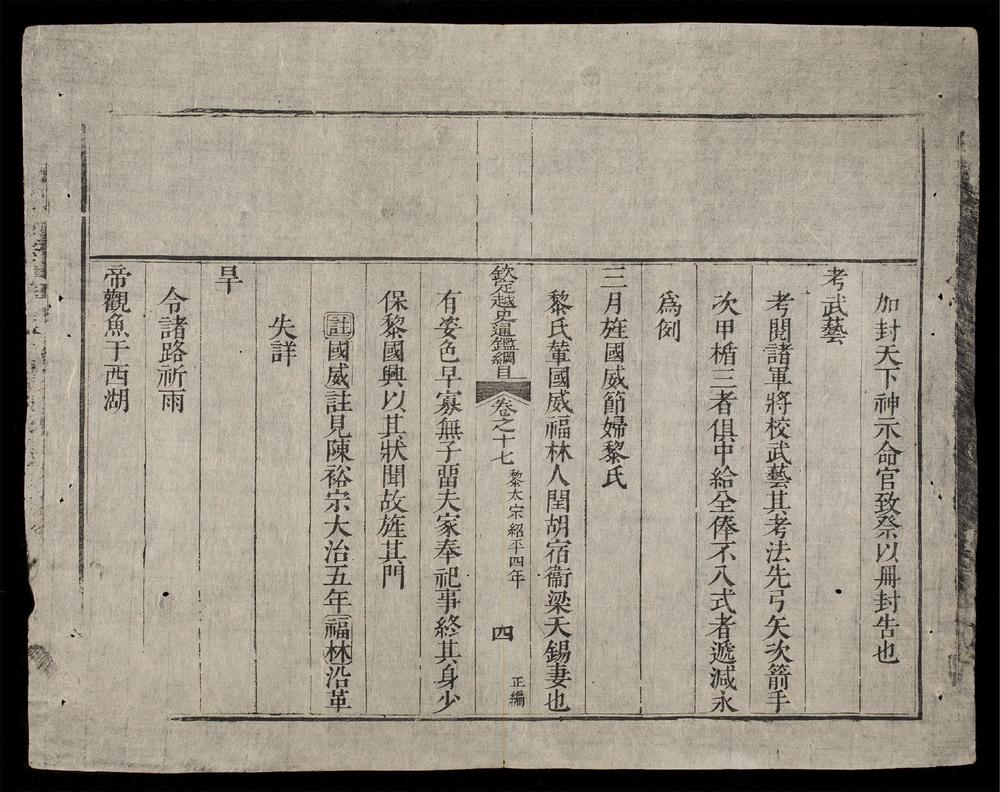 加封天下神示命官致祭以冊封告也
考武藝
考閱諸軍將校武藝其考法先弓矢次箭手
次甲楯三者俱中給全俸不入式者遞減永
爲例
三月旌國威節婦黎氏
黎氏䔡國威福林人閏胡宿衞梁天錫妻也
欽定越史通鑑綱目
卷之十七
黎太宗紹平四年
四
正編
有姿色早寡無子畱夫家奉祀事終其身少
保黎國興以其狀聞故旌其門
註國威註見陳裕宗大治五年福林沿革
失詳
旱
令諸路祈雨
帝觀魚于西湖